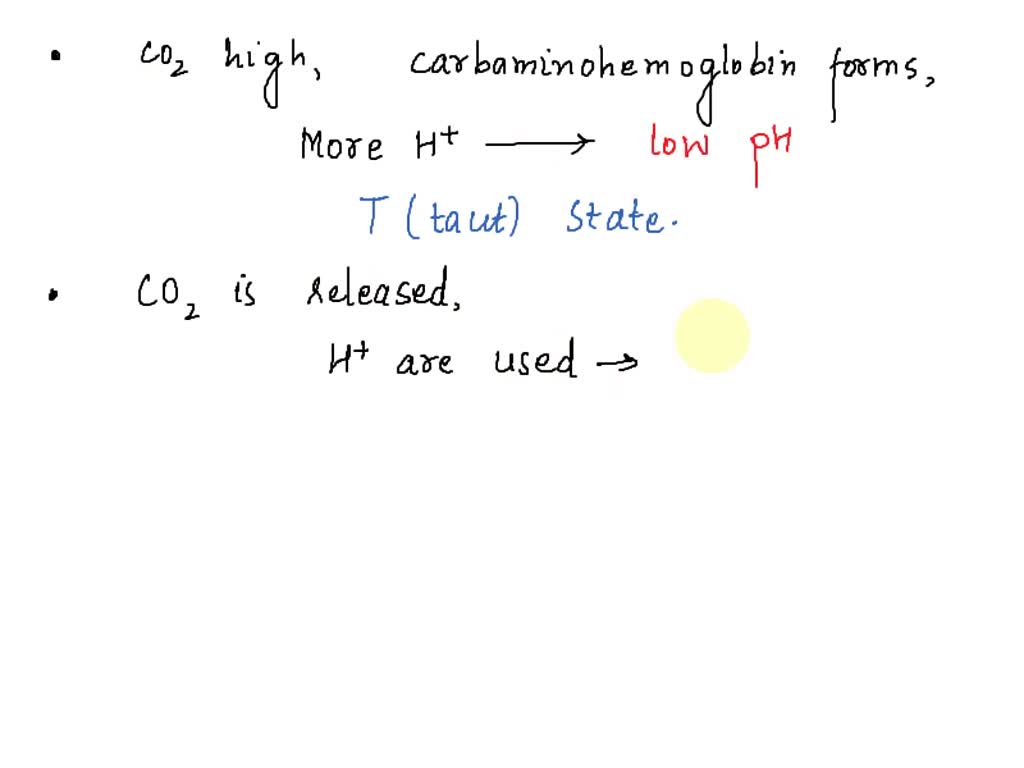 • CO₂ high, carbaminohemoglobin forms,
More H⁺ → low pH
T (taut) state.
• CO₂ is released,
H⁺ are used →